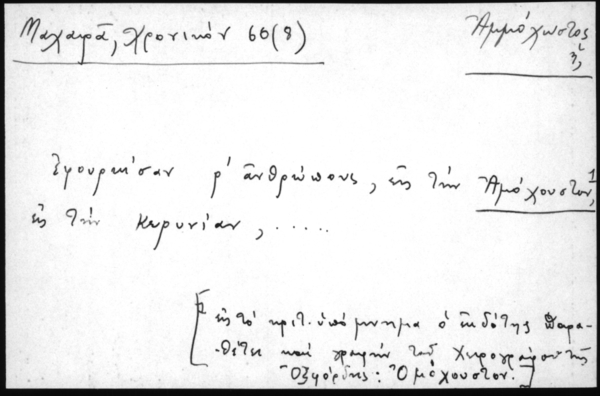 Μαχαιρᾶ, Χρονικόν 66(8)
Ἀμμόχωστος
ἡ,
Ἐφουρκίσαν ρ´ ἀνθρώπους, εἰς τὴν Ἀμόχουστον,¹
εἰς τὴν Κερυνίαν, .....
[εἰς τὸ κριτ. ὑπόμνημα ὁ ἐκδότης παρα-
-θέτει καὶ γραφὴν τοῦ χειρογράφου τῆς
Ὀξφόρδης: Ὀμόχουστον.]